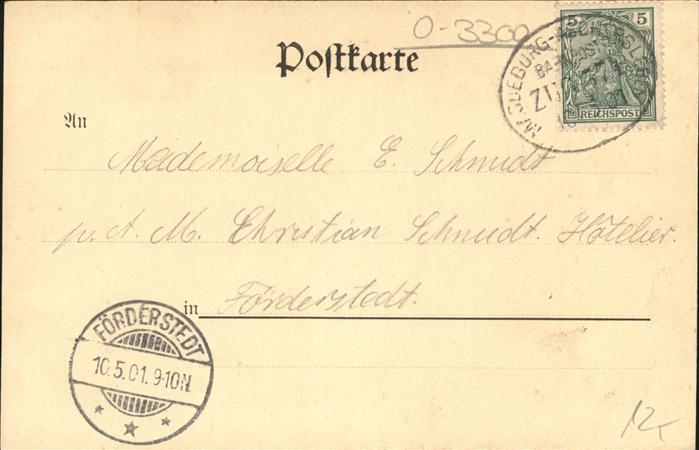 O-3300
Postkarte
5 5
REICHSPOST
MAGDEBURG-ASCHERSLEBEN
BAHNPOST
ZUG
An
Mademoiselle E. Schmidt
p. A. M. Christian Schmidt. Hôtelier.
in Förderstedt.
FÖRDERSTEDT
10.5.01.9-10N.
12,-